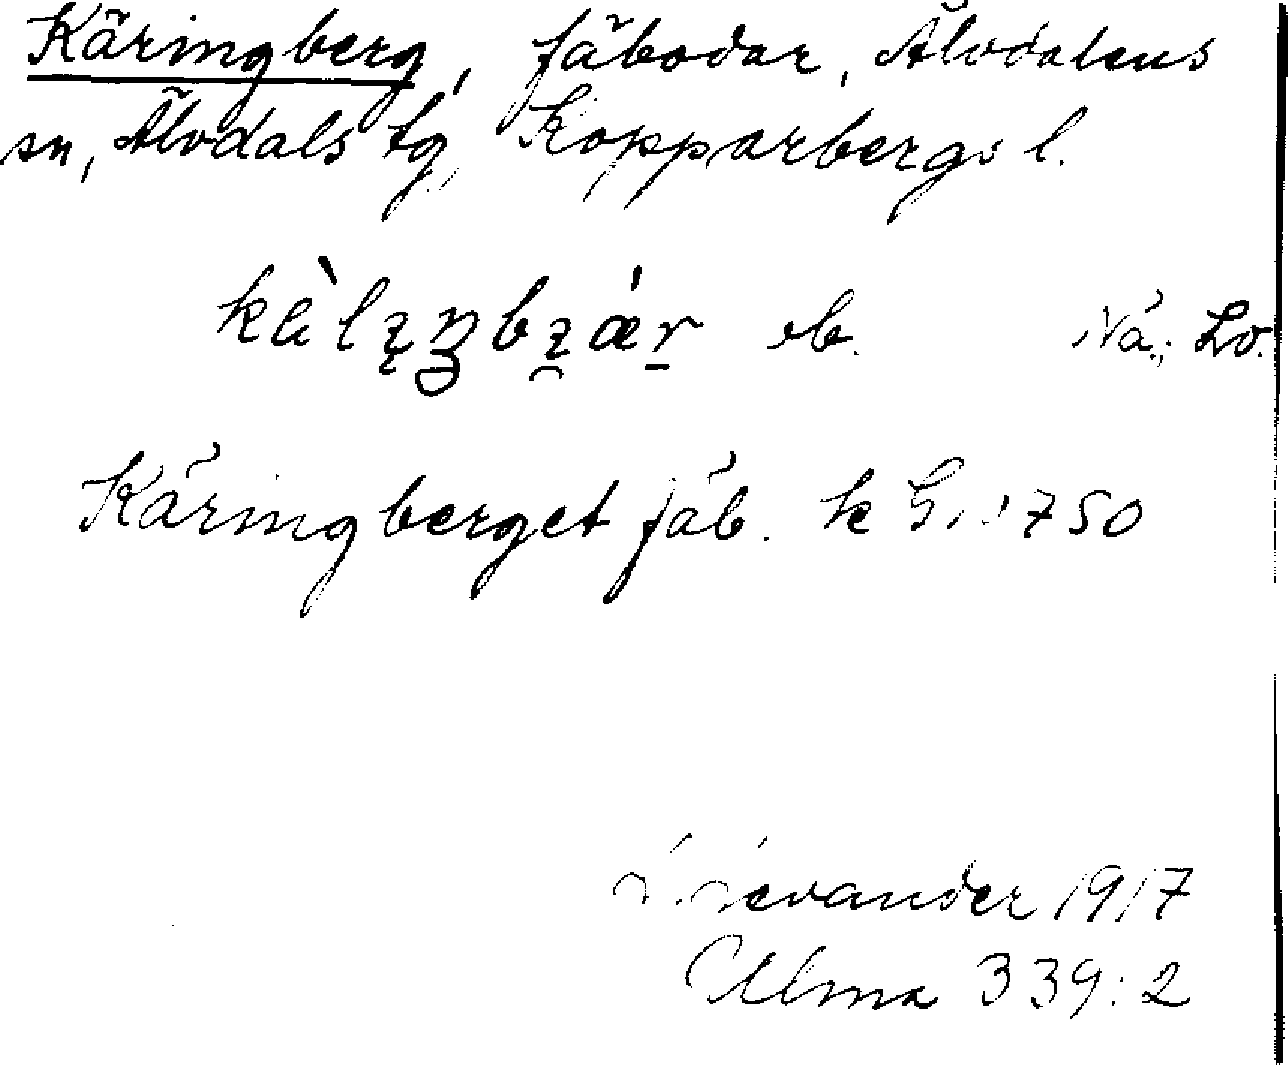 Käringberg, fäbodar, Älvdalens
sn, Älvdals tg, Kopparbergs l.
Nä.; Lo.
Käringberget fäb. k G. 1750
Levander 1917
Ulma 339:2